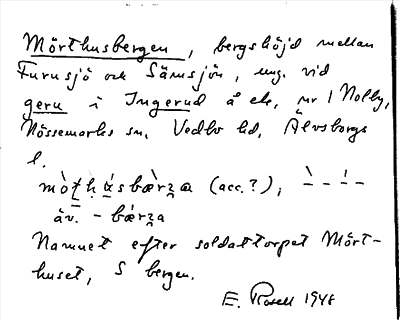 Mörthusbergen, bergshöjd mellan
Furusjö och Sämsjön, ung. vid
geru i Ingerud å ek. nr 1 Nolby,
Nössemarks sn, Vedbo hd, Älvsborgs
l.
(acc.?),
äv. -
Namnet efter soldattorpet Mört-
huset, S bergen.
E. Rosell 1948